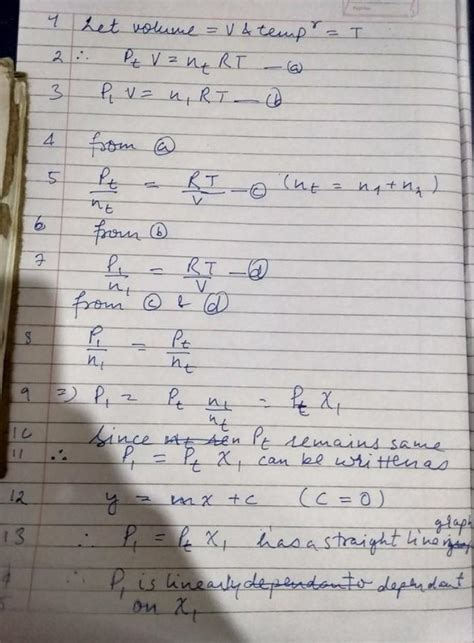 1 Let volume = V & temp^r = T
2 ∴ P_t V = n_t RT — ⓐ
3 P_1 V = n_1 RT — ⓑ
4 from ⓐ
5 P_t/n_t = RT/V — ⓒ (n_t = n_1 + n_2)
6 from ⓑ
7 P_1/n_1 = RT/V — ⓓ
from ⓒ & ⓓ
8 P_1/n_1 = P_t/n_t
9 ⇒ P_1 = P_t n_1/n_t = P_t X_1
10 Since P_t remains same
11 ∴ P_1 = P_t X_1 can be written as
12 y = mx + c (C = 0)
13 ∴ P_1 = P_t X_1 has a straight line graph
∴ P_1 is linearly dependant
on X_1